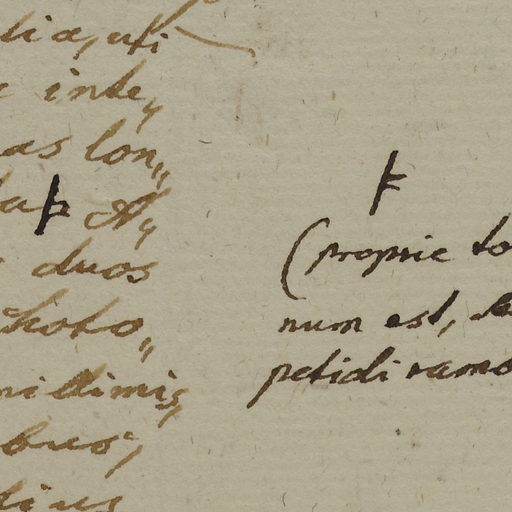 dia, uti
inte„
as lon„
duos
choto„
millimis„
bus,
dius
(proprie to
num est,
petidi ramo